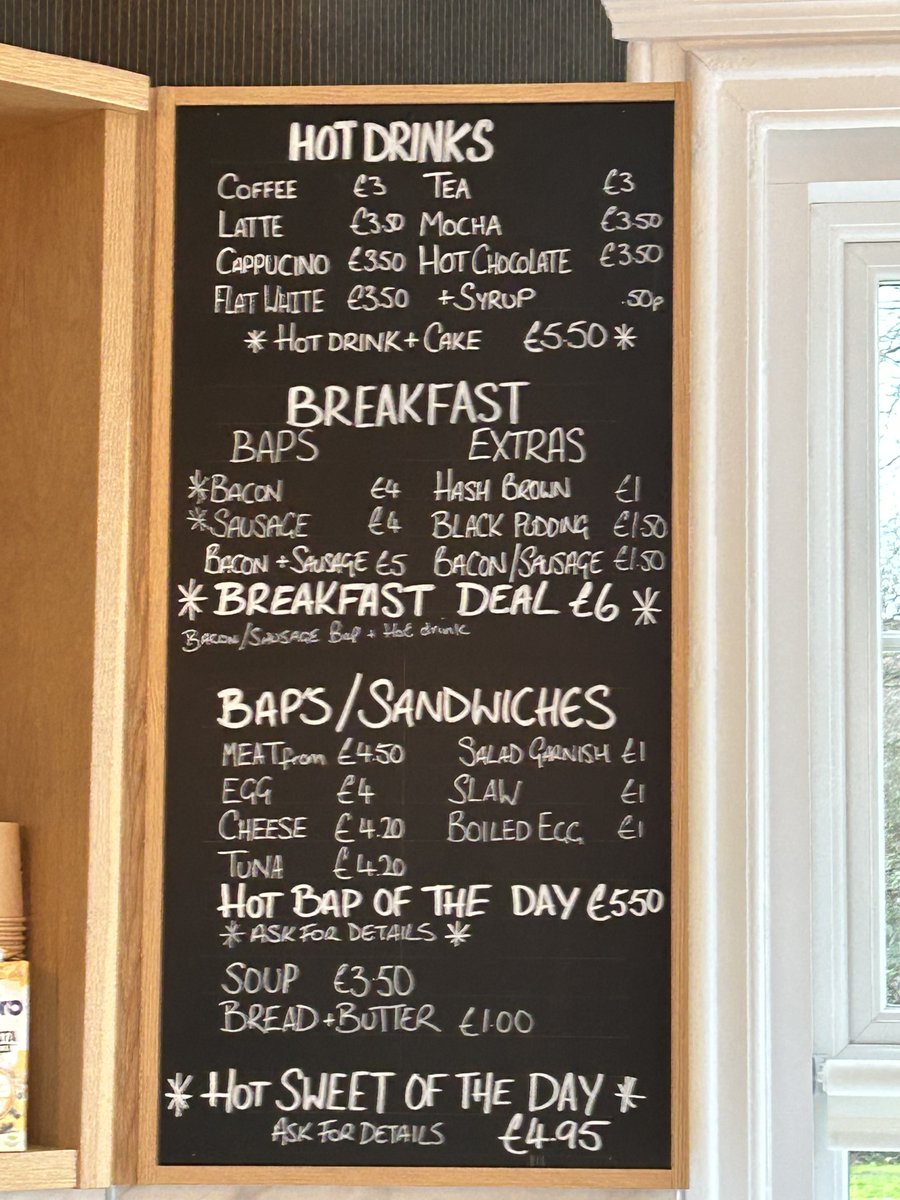 HOT DRINKS
COFFEE £3 TEA £3
LATTE £3.50 MOCHA £3.50
CAPPUCINO £3.50 HOT CHOCOLATE £3.50
FLAT WHITE £3.50 +SYRUP .50p
* HOT DRINK + CAKE £5.50 *
BREAKFAST
BAPS EXTRAS
*BACON £4 HASH BROWN £1
*SAUSAGE £4 BLACK PUDDING £1.50
BACON + SAUSAGE £5 BACON/SAUSAGE £1.50
* BREAKFAST DEAL £6 *
BACON/SAUSAGE Bap + Hot drink
BAP'S/SANDWICHES
MEAT from £4.50 SALAD GARNISH £1
EGG £4 SLAW £1
CHEESE £4.20 BOILED EGG £1
TUNA £4.20
HOT BAP OF THE DAY £5.50
* ASK FOR DETAILS *
SOUP £3.50
BREAD + BUTTER £1.00
* HOT SWEET OF THE DAY *
ASK FOR DETAILS £4.95